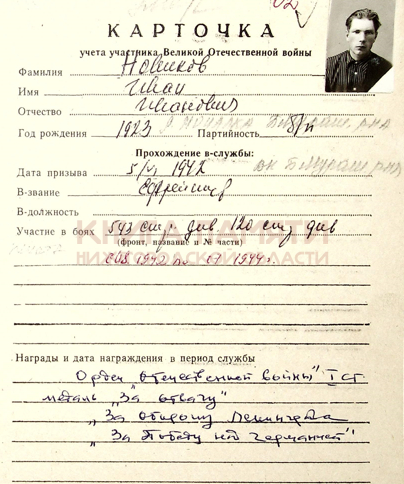 КАРТОЧКА
учета участника Великой Отечественной войны
Фамилия Новиков
Имя Иван
Отчество Иванович
Год рождения 1923 Партийность б/п
Прохождение в-службы:
Дата призыва 5/VI 1942
В-звание Ефрейтор
В-должность
Участие в боях 542 стр. див. 120 стр див
(фронт, название и № части)
КНИГА ПАМЯТИ
НИЖЕГОРОДСКОЙ ОБЛАСТИ
1942 по 01 1944 г.
Награды и дата награждения в период службы
Орден „Отечественной войны" I ст
медаль „За отвагу"
„За оборону Ленинграда
„За Победу над Германией"